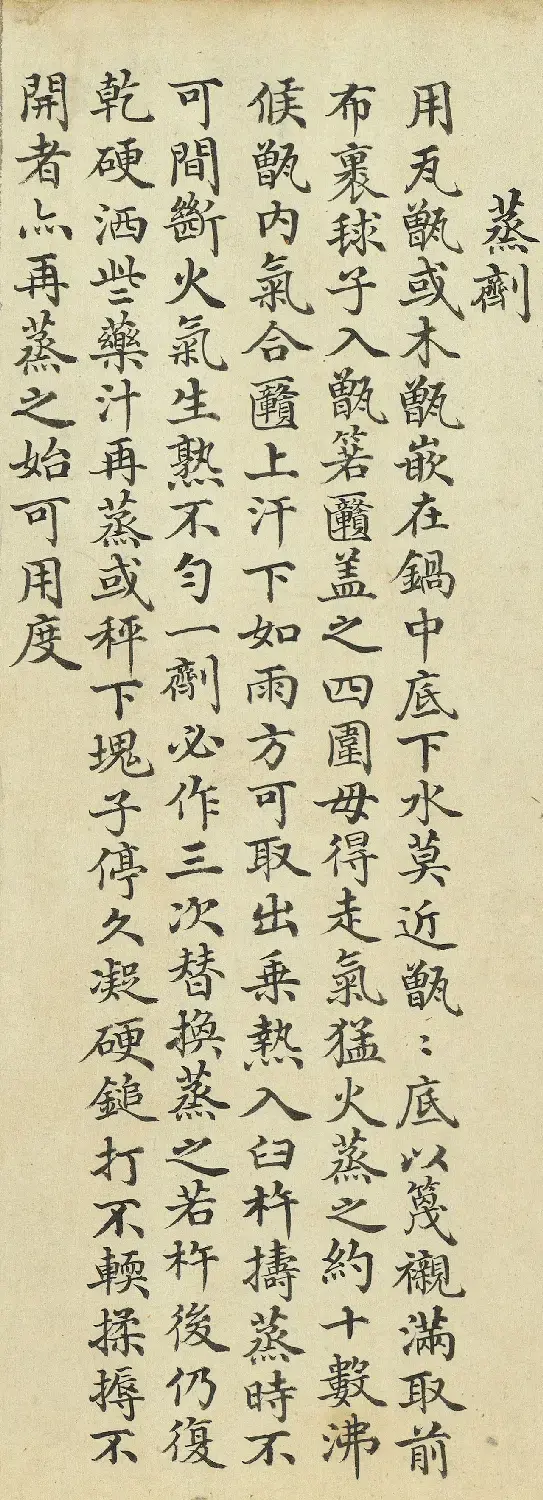 蒸劑
用瓦甑或木甑嵌在鍋中底下水莫近甑〻底以篾襯滿取前
布裹球子入甑箬匶盖之四圍毋得走氣猛火蒸之約十數沸
候甑内氣合上汗下如雨方可取出乗熱入臼杵擣蒸時不
可間斷火氣生熟不勻一劑必作三次替換蒸之若杵後仍復
乾硬洒些藥汁再蒸或秤下塊子停久凝硬鎚打不輭揉搙不
開者亦再蒸之始可用度